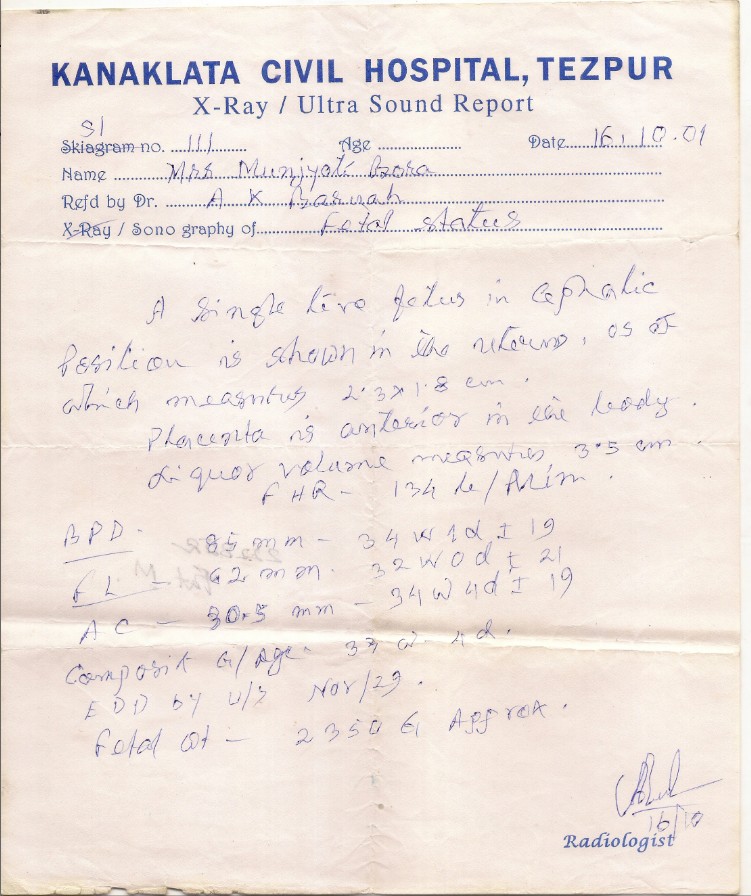 KANAKLATA CIVIL HOSPITAL, TEZPUR
X-Ray / Ultra Sound Report
Sl
Skiagram no. 111 Age Date 16.10.09
Name Mrs Munjyoti Bora
Refd by Dr. A K Baruah
X-Ray / Sono graphy of Fetal status
A single live fetus in cephalic
position is shown in the uterus. OS of
which measures 2.3x1.8 cm.
Placenta is anterior in the body.
Liquor volume measures 3.5 cm.
FHR - 134 /Min.
BPD - 85 mm - 34 W 1d ± 19
FL - 62 mm - 32 W 0d ± 21
AC - 30.5 mm - 34 W 4d ± 19
Composit G/Age - 33 W 4d.
EDD by U/S Nov/29.
Fetal Wt - 2350 G Approx.
16/10
Radiologist